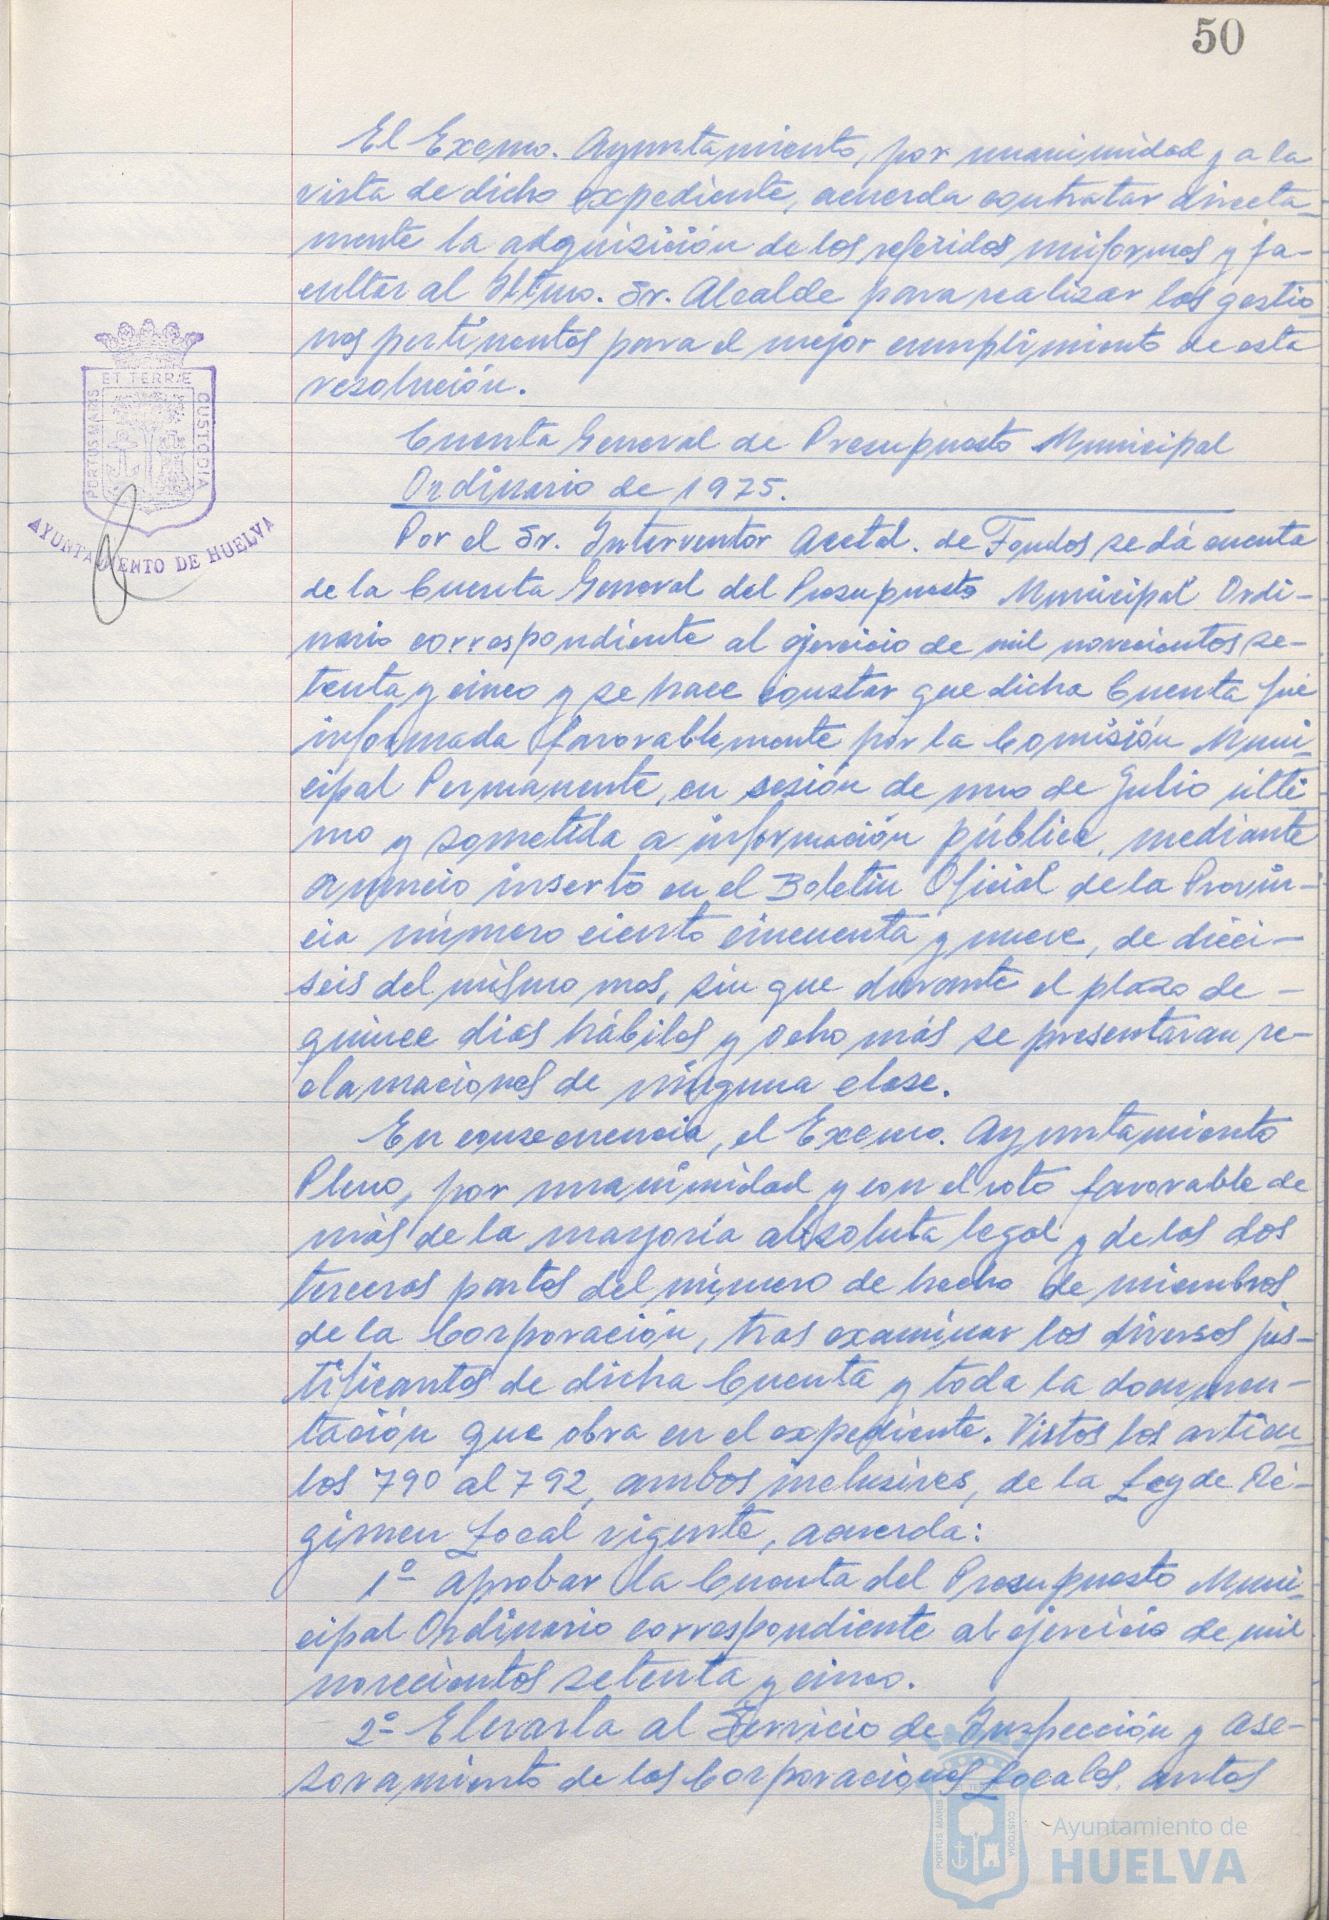 50
El Excmo. Ayuntamiento, por unanimidad y a la
vista de dicho expediente, acuerda contratar directa-
mente la adquisición de los referidos uniformes y fa-
cultar al Iltmo. Sr. Alcalde para realizar las gestio-
nes pertinentes para el mejor cumplimiento de esta
resolución.
Cuenta General de Presupuesto Municipal
Ordinario de 1975.
Por el Sr. Interventor Acctal. de Fondos se dá cuenta
de la Cuenta General del Presupuesto Municipal Ordi-
nario correspondiente al ejercicio de mil novecientos se-
tenta y cinco y se hace constar que dicha Cuenta fué
informada favorablemente por la Comisión Muni-
cipal Permanente, en sesión de uno de Julio últi-
mo y sometida a información pública, mediante
anuncio inserto en el Boletín Oficial de la Provin-
cia número ciento cincuenta y nueve, de dieci-
seis del mismo mes, sin que durante el plazo de -
quince dias hábiles y ocho más se presentaran re-
clamaciones de ninguna clase.
En consecuencia, el Excmo. Ayuntamiento
Pleno, por unanimidad y con el voto favorable de
más de la mayoría absoluta legal y de las dos
terceras partes del número de hecho de miembros
de la Corporación, tras examinar los diversos jus-
tificantes de dicha Cuenta y toda la documen-
tación que obra en el expediente. Vistos los artícu-
los 790 al 792, ambos inclusives, de la Ley de Ré-
gimen Local vigente, acuerda:
1º Aprobar la Cuenta del Presupuesto Muni-
cipal Ordinario correspondiente al ejercicio de mil
novecientos setenta y cinco.
2º Elevarla al Servicio de Inspección y Ase-
soramiento de las Corporaciones Locales, antes
ET TERRÆ
PORTUS MARIS
CUSTODIA
AYUNTAMIENTO DE HUELVA
PORTUS MARIS
CUSTODIA
Ayuntamiento de
HUELVA